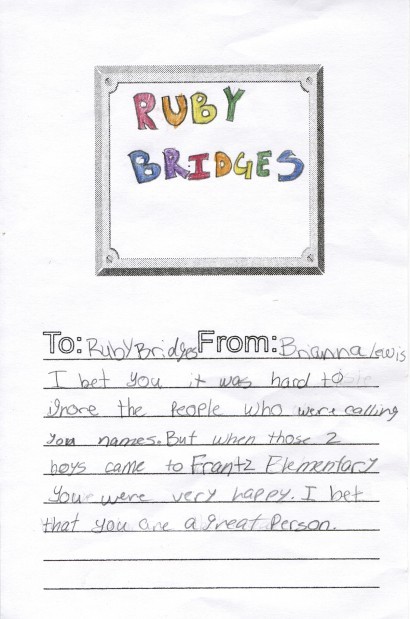 RUBY
BRIDGES
To: Ruby Bridges From: Brianna lewis
I bet you it was hard to
ignore the people who were calling
you names. But when those 2
boys came to Frantz Elementary
you were very happy. I bet
that you are a great person.